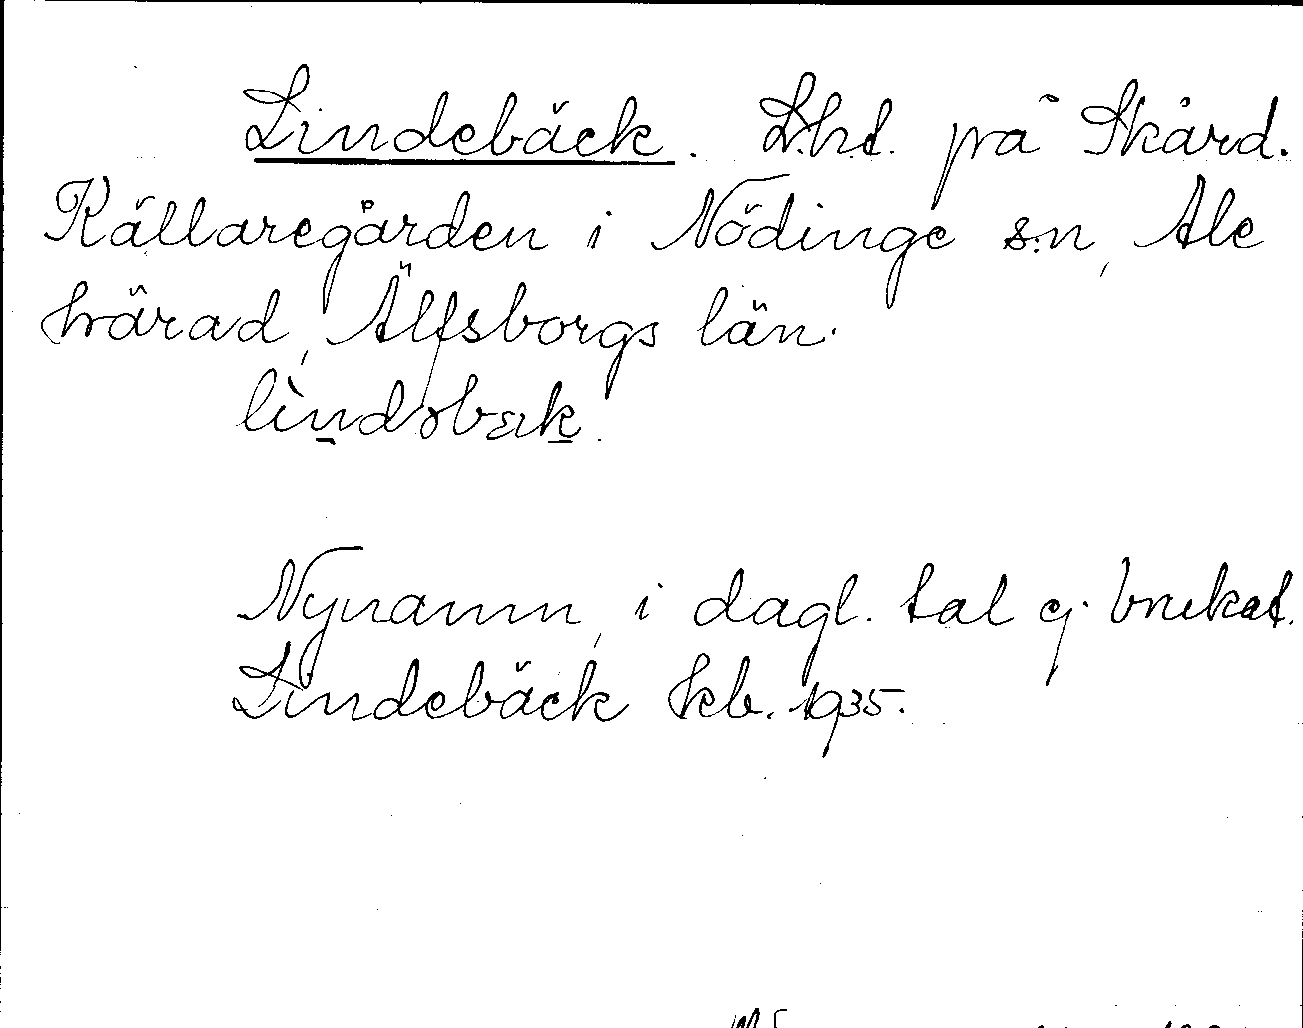 Lindebäck. L.h.t. på Skård.
Källaregården i Nödinge s:n, Ale
härad, Älfsborgs län.
Nynamn, i dagl. tal ej brukat.
Lindebäck kb. 1935.